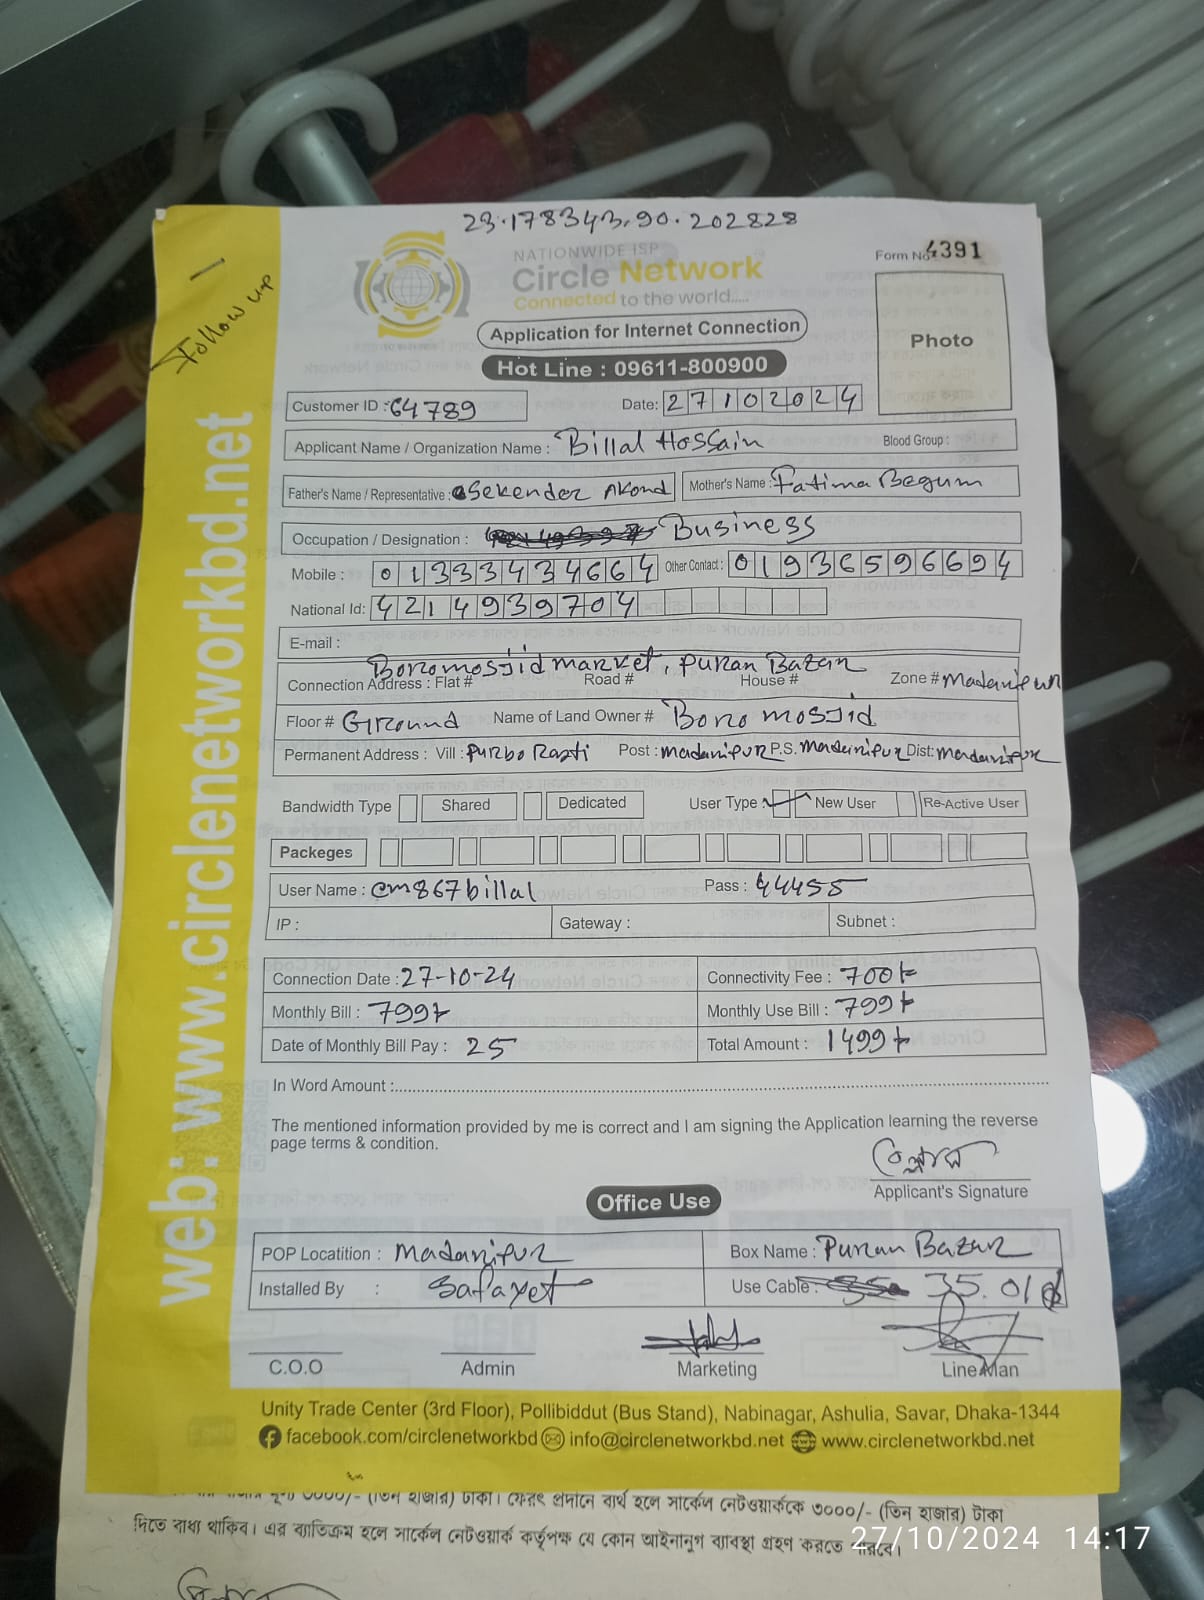 23.178343,90.202828
Follow up
NATIONWIDE ISP
Circle Network
Connected to the world.....
Form No 4391
Photo
Application for Internet Connection
Hot Line : 09611-800900
Customer ID : 64789 Date: 27102024
Applicant Name / Organization Name : Billal Hossain Blood Group :
Father's Name / Representative : Sekender Akond Mother's Name : Fatima Begum
Occupation / Designation : Business
Mobile : 01333434664 Other Contact : 01936596694
National Id: 4214939704
E-mail :
Boromosjid market, Puran Bazar
Connection Address : Flat # Road # House # Zone # Madaripur
Floor # Ground Name of Land Owner # Boro mosjid
Permanent Address : Vill : Purbo Rasti Post : Madaripur P.S. Madaripur Dist: Madaripur
Bandwidth Type Shared Dedicated User Type New User Re-Active User
Packeges
User Name : cm867billal Pass : 44455
IP : Gateway : Subnet :
Connection Date : 27-10-24 Connectivity Fee : 700/-
Monthly Bill : 799/- Monthly Use Bill : 799/-
Date of Monthly Bill Pay : 25 Total Amount : 1499/-
In Word Amount :
The mentioned information provided by me is correct and I am signing the Application learning the reverse
page terms & condition.
Applicant's Signature
Office Use
POP Locatition : Madaripur Box Name : Puran Bazar
Installed By : Safayet Use Cable : 35.01
C.O.O Admin Marketing Line Man
Unity Trade Center (3rd Floor), Pollibiddut (Bus Stand), Nabinagar, Ashulia, Savar, Dhaka-1344
facebook.com/circlenetworkbd info@circlenetworkbd.net www.circlenetworkbd.net
web: www.circlenetworkbd.net
৩০০০/- (তিন হাজার) টাকা। ফেরৎ প্রদানে ব্যর্থ হলে সার্কেল নেটওয়ার্ককে ৩০০০/- (তিন হাজার) টাকা
দিতে বাধ্য থাকিব। এর ব্যতিক্রম হলে সার্কেল নেটওয়ার্ক কর্তৃপক্ষ যে কোন আইনানুগ ব্যবস্থা গ্রহণ করতে পারবে।
27/10/2024 14:17